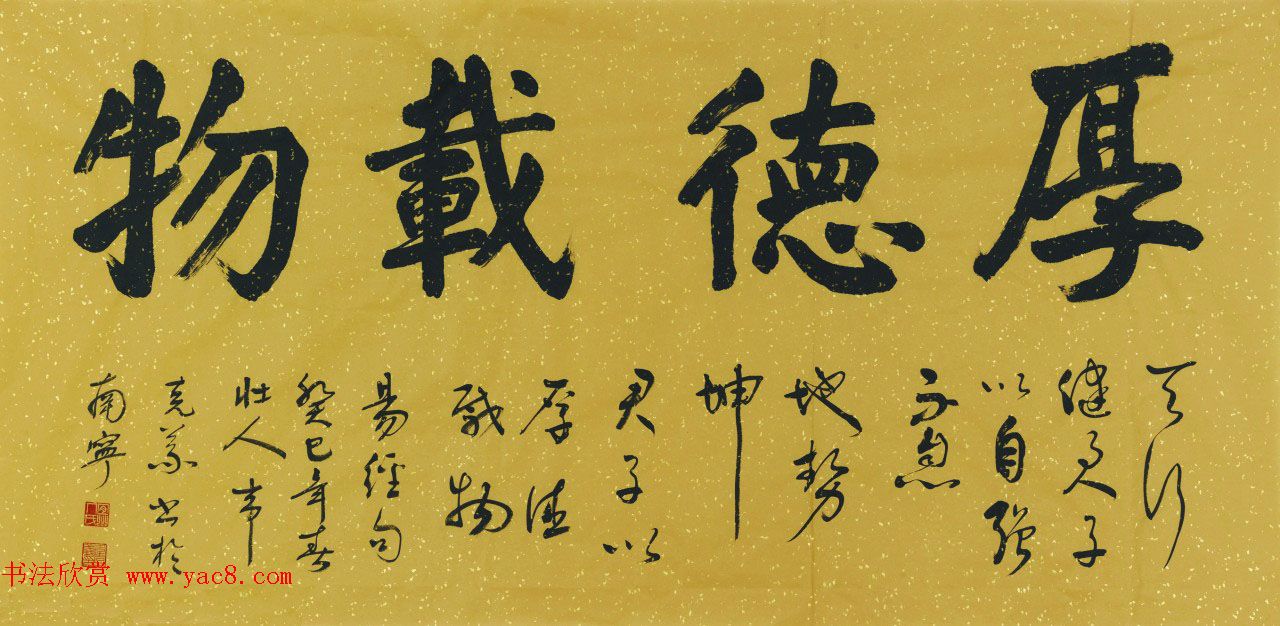 厚德載物
天行
健君子
以自强
不息
地勢
坤
君子以
厚德
載物
易經句
癸巳年春
壮人韦
克義书於
南寧
书法欣赏 www.yac8.com